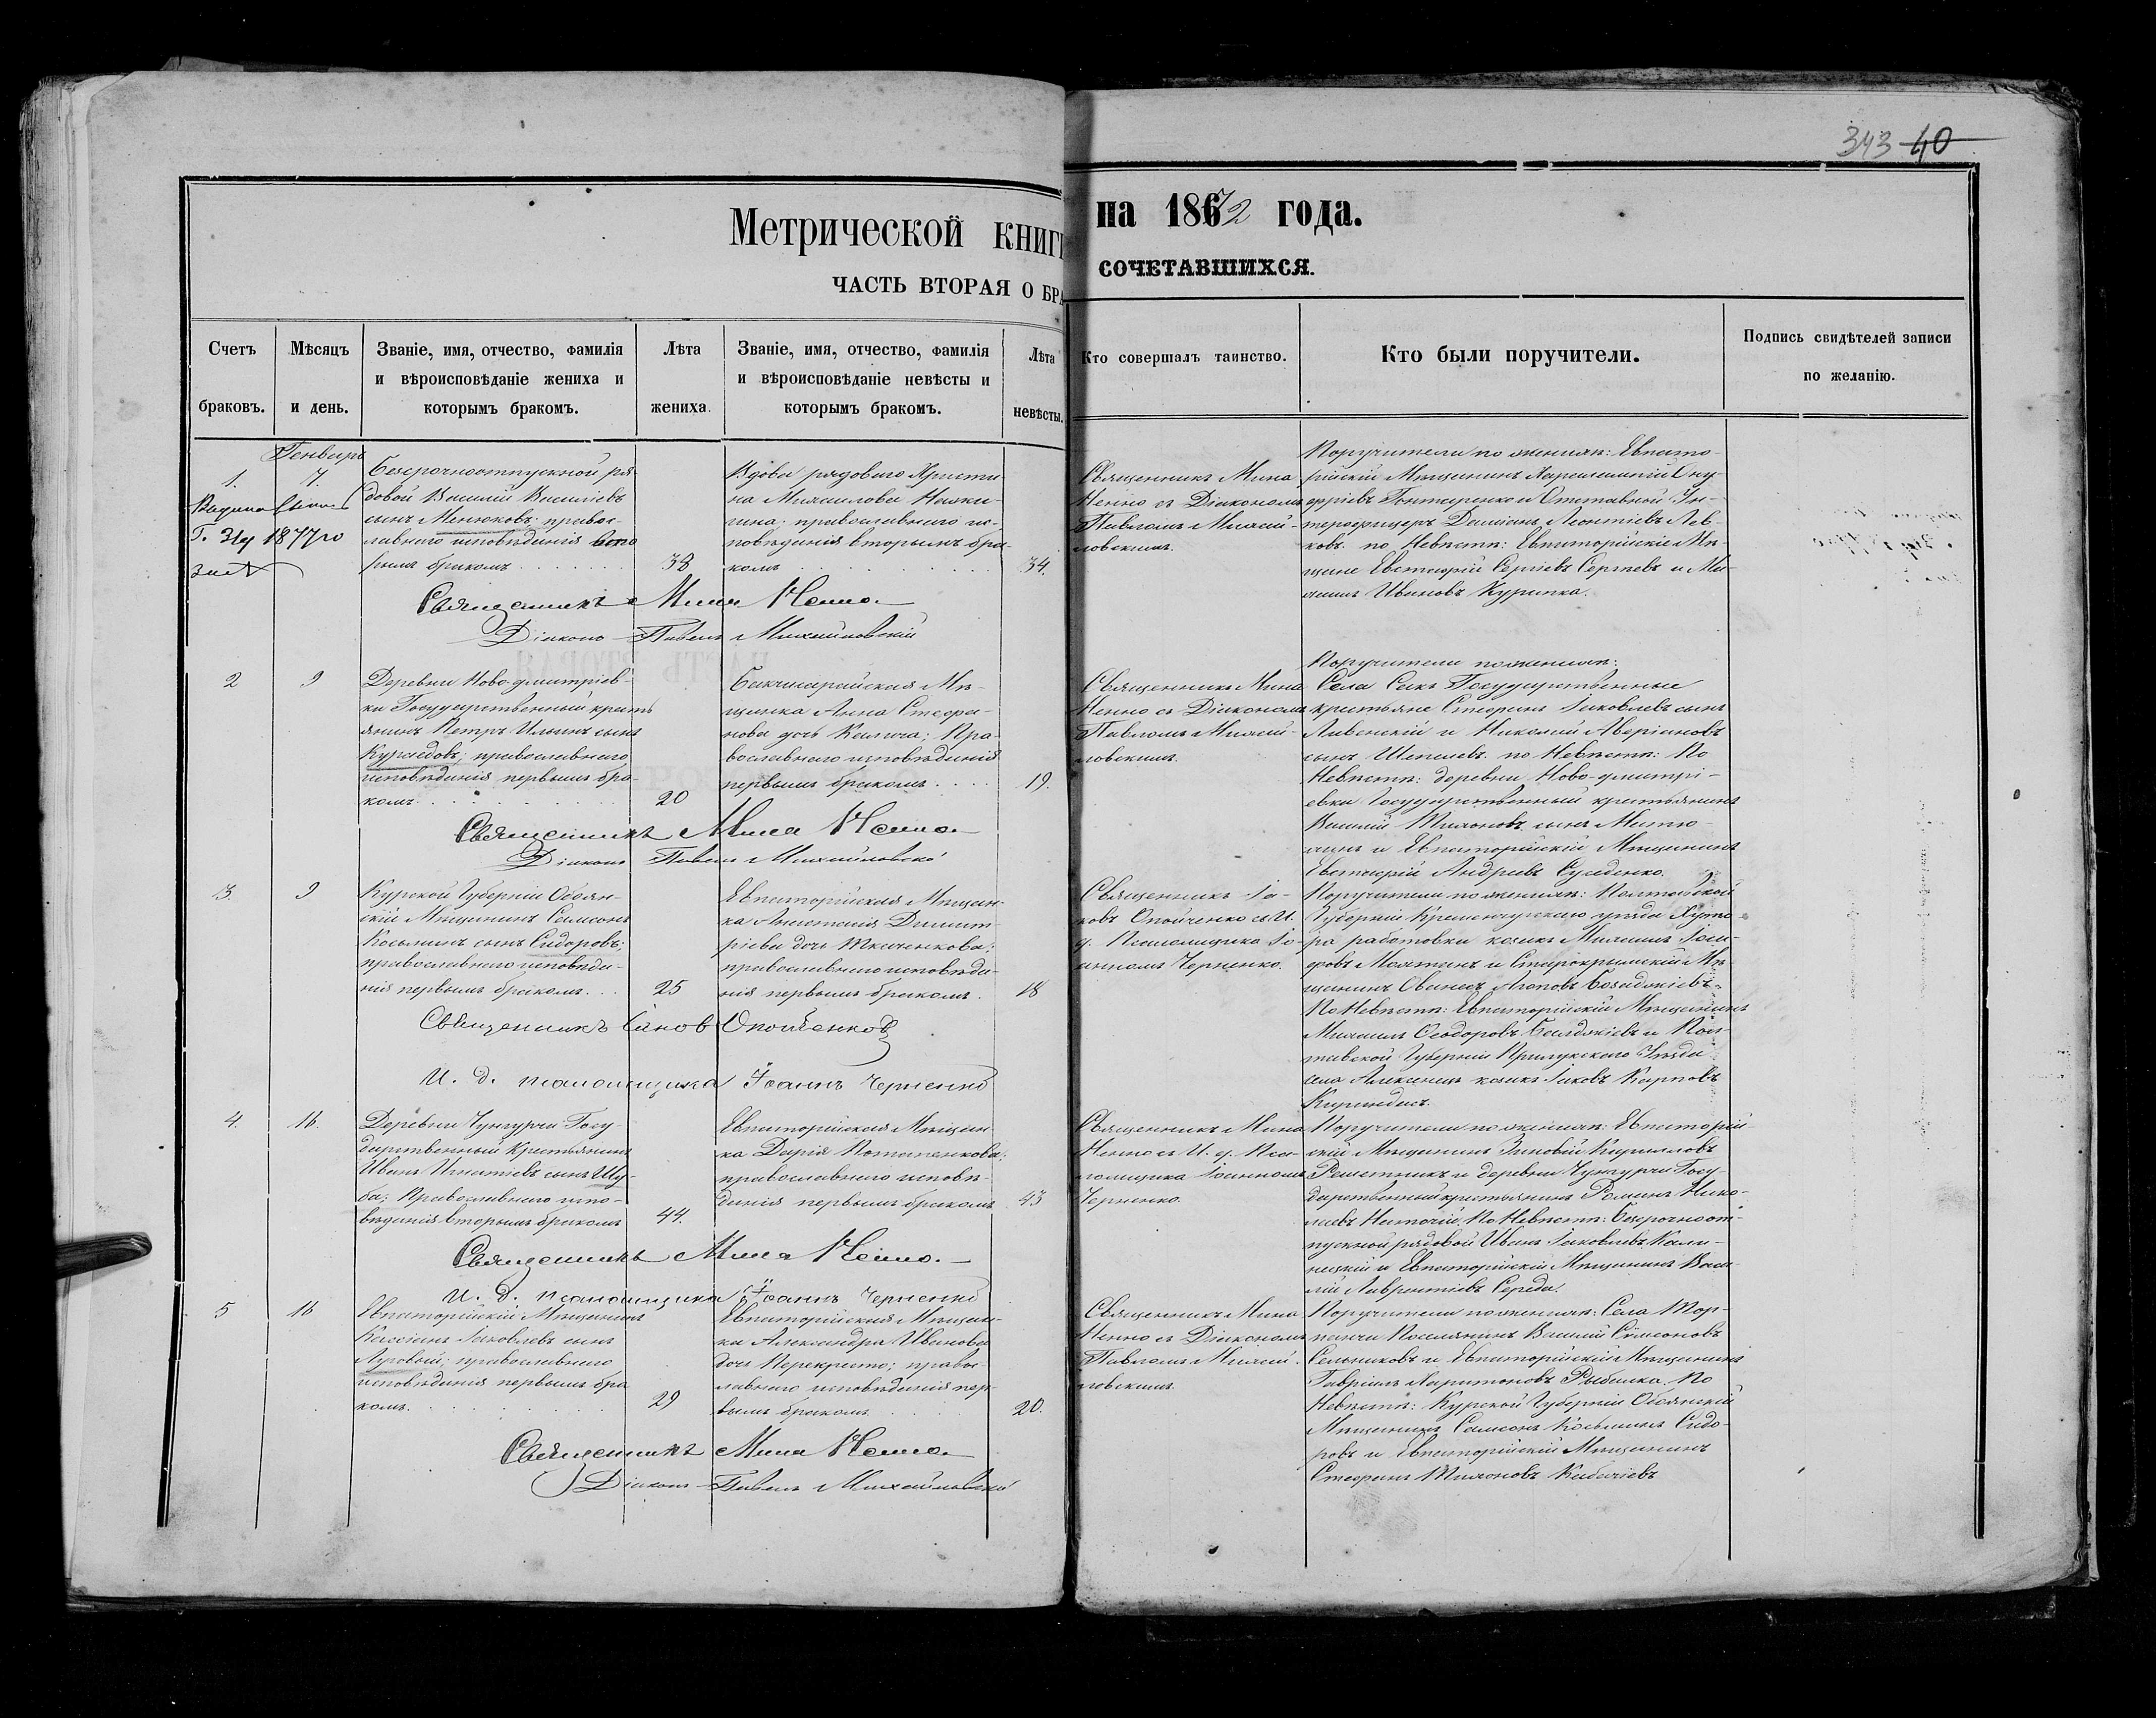 343 40
Метрической книги на 1872 года.
ЧАСТЬ ВТОРАЯ О БРА СОЧЕТАВШИХСЯ.
Счетъ браковъ.
Мѣсяцъ и день.
Званіе, имя, отчество, фамилія
и вѣроисповѣданіе жениха и
которымъ бракомъ.
Лѣта жениха.
Званіе, имя, отчество, фамилія
и вѣроисповѣданіе невѣсты и
которымъ бракомъ.
Лѣта невѣсты.
Кто совершалъ таинство.
Кто были поручители.
Подпись свидѣтелей записи
по желанію.
Генваря
1.
7.
1877
Безсрочноотпускной ря-
довой Василій Василіевъ
сынъ Менюковъ; правос-
лавнаго исповѣданія вто
рымъ бракомъ
38
Вдова рядоваго Христи
на Михаилова
православнаго ис-
повѣданія вторымъ бра-
комъ
34.
Священникъ Мина
Ненно съ Діакономъ
Павломъ Михай-
ловскимъ.
Поручители по женихѣ: Евпато-
рійскій Мѣщанинъ Харалампій Ону-
фріевъ Гонтаренко и Отставной Ун-
теръофицеръ Даміанъ Леонтіевъ Лев-
ковъ. по Невѣстѣ: Евпаторійскіе Мѣ-
щане Евстафій Сергіевъ Сергѣевъ и Ми-
хаилъ Ивановъ Курипка.
Священникъ Мина Ненно.
Діаконъ Павелъ Михайловскій
2
9
Деревни Ново-дмитріев-
ки Государственный кресть
янинъ Петръ Ильинъ сынъ
православнаго
исповѣданія первымъ бра-
комъ
20
Бакчисарайская Мѣ-
щанка Анна Стефа-
нова дочь Калича; Пра-
вославнаго исповѣданія
первымъ бракомъ
19.
Священникъ Мина
Ненно съ Діакономъ
Павломъ Михай-
ловскимъ.
Поручители по женихѣ:
Села Сакъ Государственные
крестьяне Стефанъ Іаковлевъ сынъ
Ливенскій и Николай Аверіановъ
сынъ Шепелевъ. по Невѣстѣ: По
Невѣстѣ: деревни Ново-дмитрі-
евки Государственный крестьянинъ
Василій Тихоновъ сынъ Матю-
хинъ и Евпаторійскій Мѣщанинъ
Евстафій Андреевъ
Священникъ Мина Ненно.
Діаконъ Павелъ Михайловскій
3.
9
Курской Губерніи Обоян-
скій Мѣщанинъ Самсонъ
Косьминъ сынъ Сидоровъ;
православнаго исповѣда-
нія первымъ бракомъ
25
Евпаторійская Мѣщан-
ка Анастасія Димит-
ріева дочь Ткаченкова;
православнаго исповѣда-
нія первымъ бракомъ.
18
Священникъ Іа-
ковъ Опойченко съ И.
д. Псаломщика Іо-
анномъ Черненко.
Поручители по женихѣ: Полтавской
Губерніи Кременчугскаго уѣзда Хуто-
ра работовки козакъ Михаилъ Іоси-
фовъ и Старокрымскій Мѣ-
щанинъ Ованесъ Агоповъ
По Невѣстѣ: Евпаторійскій Мѣщанинъ
Михаилъ Ѳеодоровъ и Пол-
тавской Губерніи Прилукскаго Уѣзда
села козакъ Іаковъ Карповъ
Священникъ Іаковъ Опойченковъ
И. д. псаломщика Іоаннъ Черненко
4.
16.
Деревни Чунгурчи Госу-
дарственный Крестьянинъ
Иванъ Игнатіевъ сынъ Шу-
ба; Православнаго испо-
вѣданія вторымъ бракомъ
44.
Евпаторійская Мѣщан-
ка Дарія Потапенкова;
православнаго исповѣ-
данія первымъ бракомъ
43
Священникъ Мина
Ненно съ И. д. Пса-
ломщика Іоанномъ
Черненко.
Поручители по женихѣ: Евпаторій-
скій Мѣщанинъ Зиновій Кирилловъ
Решетникъ и деревни Чунгурчи Госу-
дарственный крестьянинъ Романъ Нико-
лаевъ По Невѣстѣ: Безсрочноот-
пускной рядовой Иванъ Іаковлевъ Кали-
ницкій и Евпаторійскій Мѣщанинъ Васи-
лій Лаврентіевъ Середа.
Священникъ Мина Ненно.
И. д. псаломщика Іоаннъ Черненко
5
16
Евпаторійскій Мѣщанинъ
Кассіанъ Іаковлевъ сынъ
Луговый; православнаго
исповѣданія первымъ бра
комъ.
29
Евпаторійская Мѣщан-
ка Александра Иванова
дочь Перекресто; правос-
лавнаго исповѣданія пер-
вымъ бракомъ
20.
Священникъ Мина
Ненно съ Діакономъ
Павломъ Михай-
ловскимъ
Поручители по женихѣ: Села Тор-
панчи Поселянинъ Василій Симоновъ
Сельниковъ и Евпаторійскій Мѣщанинъ
Гавріилъ Харитоновъ Рыбалка. По
Невѣстѣ: Курской Губерніи Обоянскій
Мѣщанинъ Самсонъ Косьминъ Сидо-
ровъ и Евпаторійскій Мѣщанинъ
Стефанъ Тихоновъ
Священникъ Мина Ненно.
Діаконъ Павелъ Михайловскій